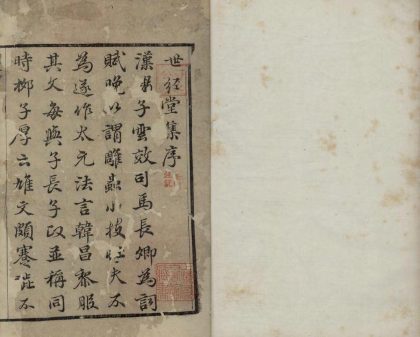 世經堂集序
漢楊子雲效司馬長卿為詞
賦晚以謂雕蟲小技壯夫不
為遂作太元法言韓昌黎服
其文每與子長子政並稱同
時栁子厚云雄文頗蹇澁不